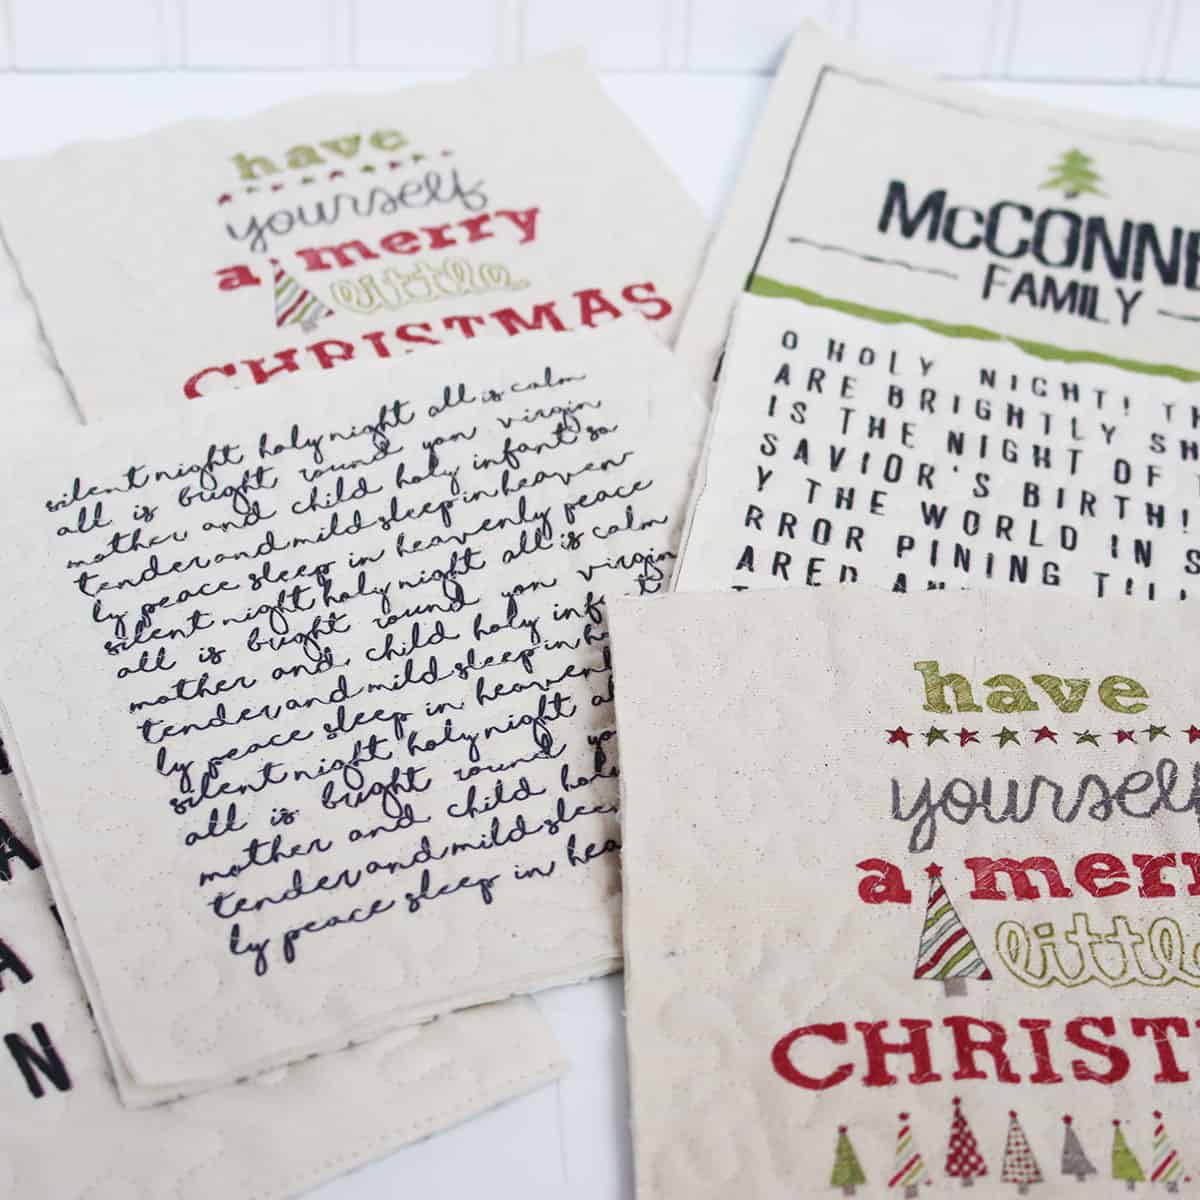 have
yourself
a merry
little
CHRISTMAS
McCONNE
FAMILY
O HOLY NIGHT! TH
ARE BRIGHTLY SH
IS THE NIGHT OF
SAVIOR'S BIRTH!
Y THE WORLD IN S
RROR PINING TILL
ARED AN
silent night holy night all is calm
all is bright round yon virgin
mother and child holy infant so
tender and mild sleep in heaven
ly peace sleep in heavenly peace
silent night holy night all is calm
all is bright round yon virgin
mother and child holy infant
tender and mild sleep in h
ly peace sleep in heavenl
silent night holy night al
all is bright round yo
mother and child hol
tender and mild sleep
ly peace sleep in hea
have
yourself
a merr
little
CHRIST
A
A
N